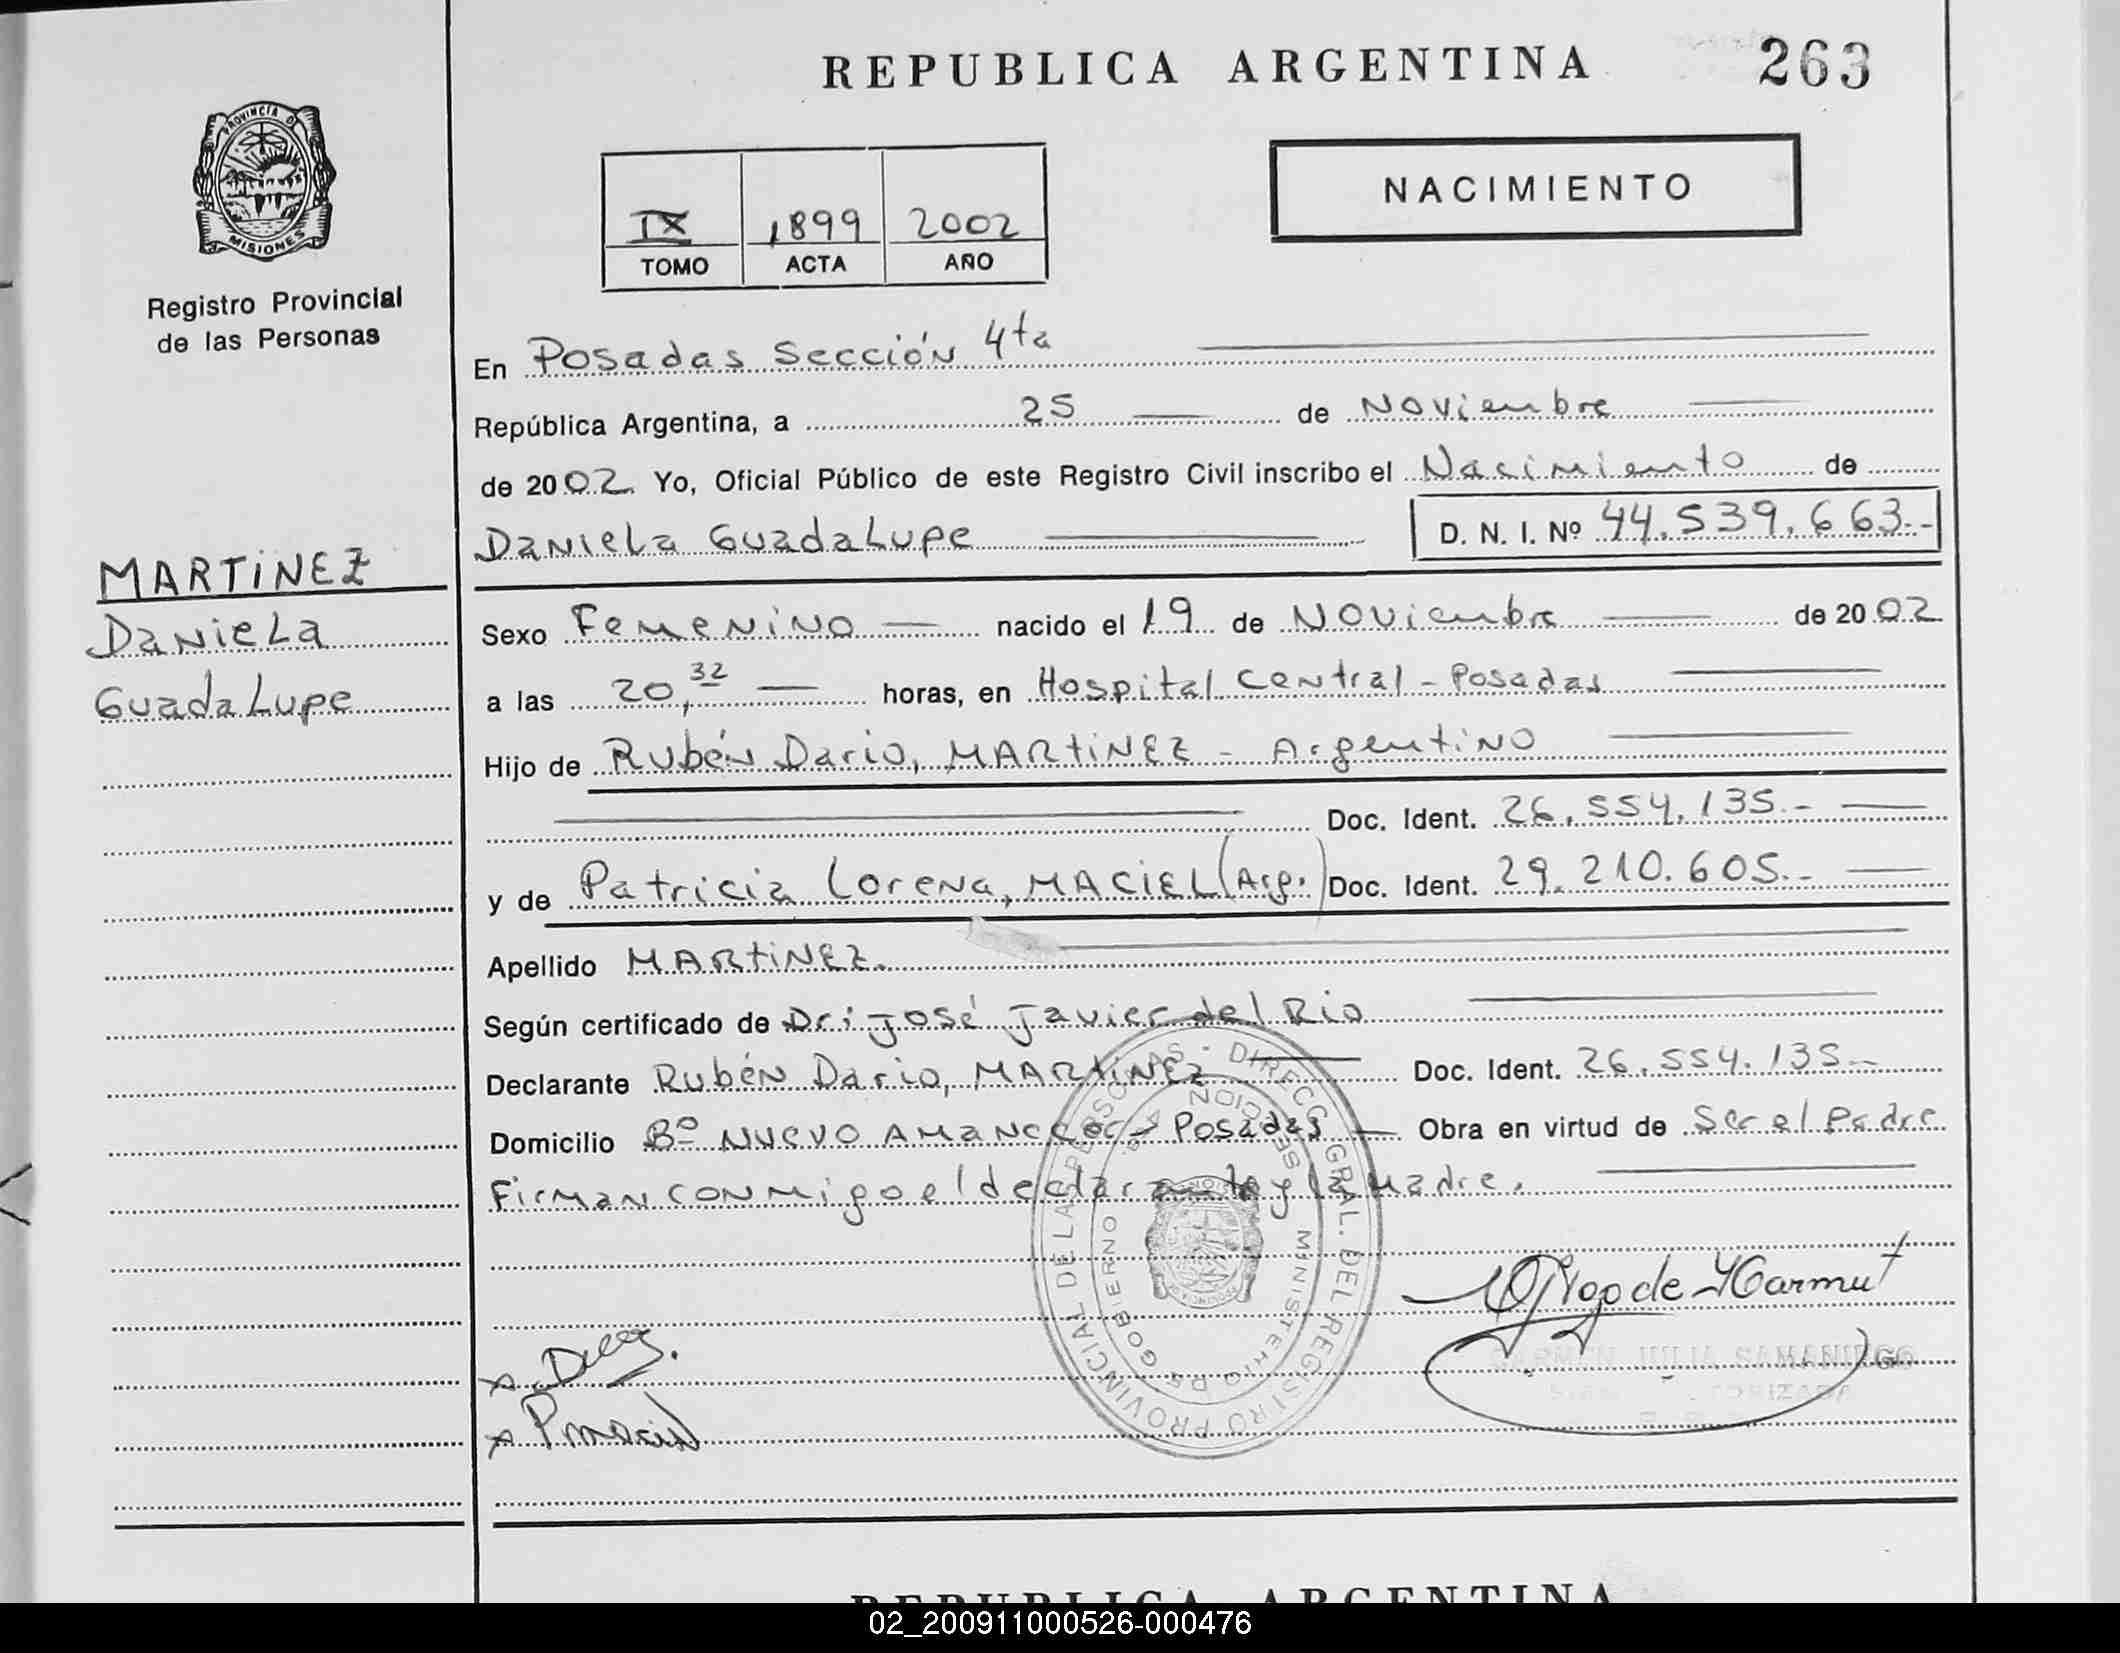 REPUBLICA ARGENTINA
263
PROVINCIA D
MISIONES
Registro Provincial
de las Personas
IX 1899 2002
TOMO ACTA AÑO
NACIMIENTO
En Posadas Sección 4ta
República Argentina, a 25 de Noviembre
de 2002 Yo, Oficial Público de este Registro Civil inscribo el Nacimiento de
Daniela Guadalupe D. N. I. Nº 44.539.663.-
MARTINEZ
Daniela
Guadalupe
Sexo Femenino nacido el 19 de Noviembre de 2002
a las 20,32 horas, en Hospital Central - Posadas
Hijo de Rubén Dario, MARTINEZ - Argentino
Doc. Ident. 26.554.135.-
y de Patricia Lorena, MACIEL (Arg.) Doc. Ident. 29.210.605.-
Apellido MARTINEZ.
Según certificado de Dr: José Javier del Rio
Declarante Rubén Dario, MARTINEZ Doc. Ident. 26.554.135.-
Domicilio Bº Nuevo Amanecer - Posadas Obra en virtud de Ser el Padre
Firman conmigo el declarante y la Madre.
DIRECC. GRAL. DEL REGISTRO PROVINCIAL DE LAS PERSONAS -
MINISTERIO DE GOBIERNO
SECCION
de Karmut
CARMEN JULIA SAMANIEGO
REPUBLICA ARGENTINA
02_200911000526-000476